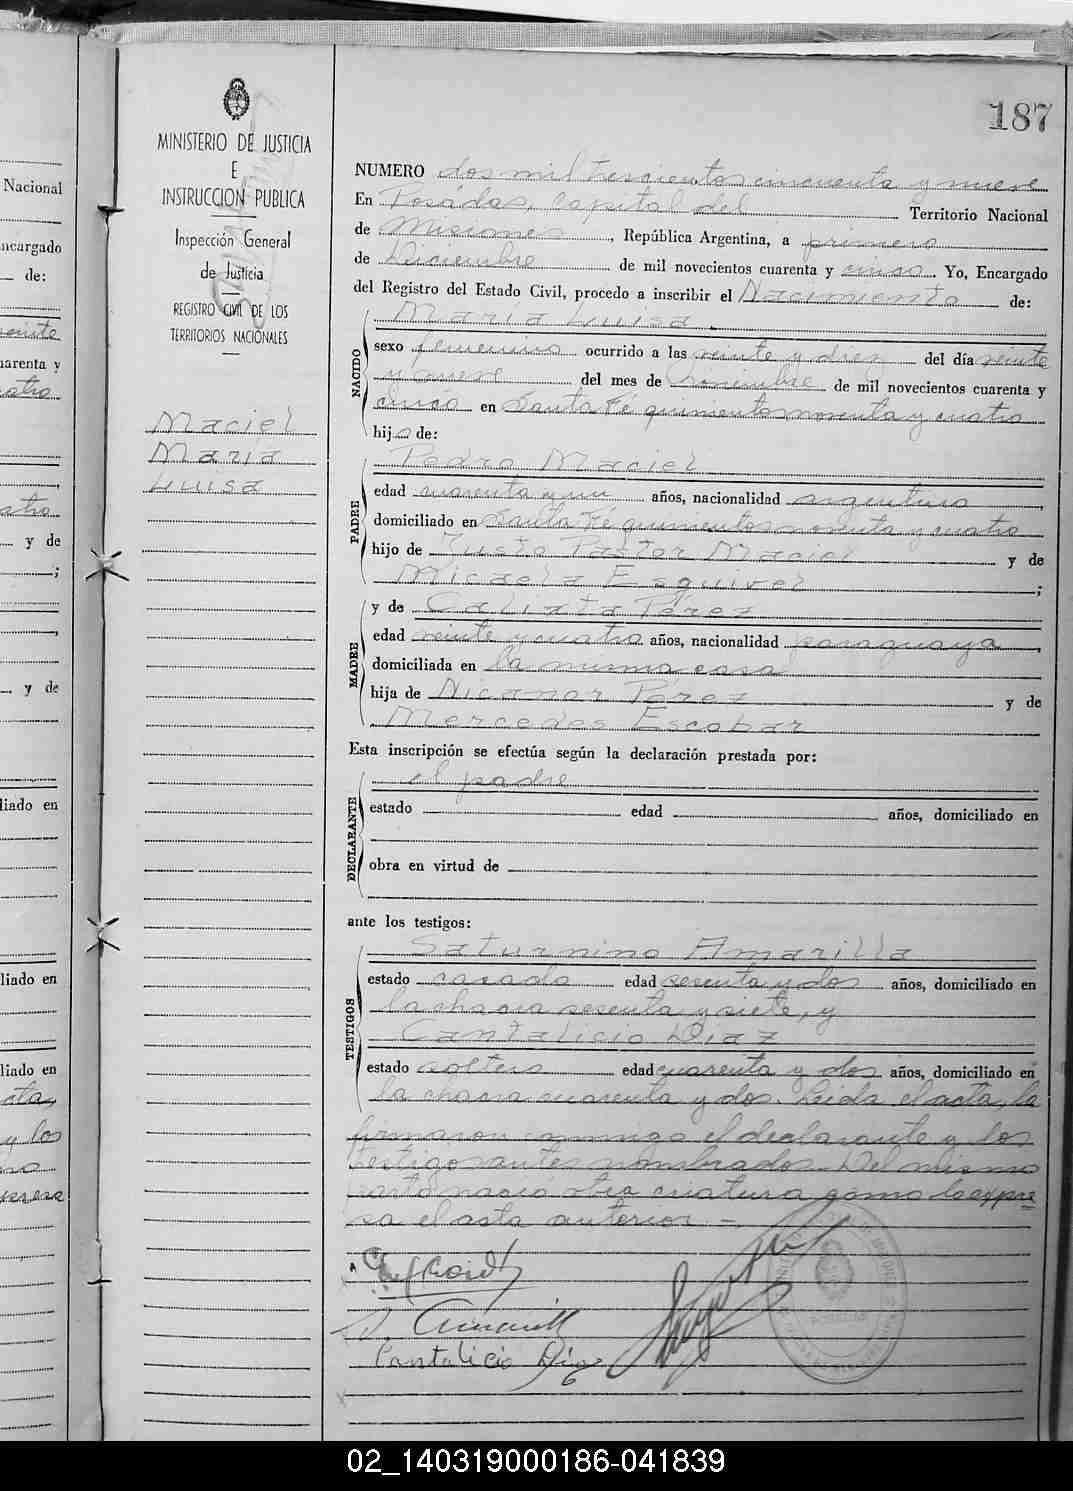 187
MINISTERIO DE JUSTICIA
E
INSTRUCCION PUBLICA
Inspección General
de Justicia
REGISTRO CIVIL DE LOS
TERRITORIOS NACIONALES
Maciel
María
Luisa
Nacional
ncargado
de:
arenta y
y de
;
y de
liado en
liado en
liado en
y los
NUMERO dos mil trescientos cincuenta y nueve
En Posadas, Capital del Territorio Nacional
de Misiones, República Argentina, a primero
de Diciembre de mil novecientos cuarenta y cinco. Yo, Encargado
del Registro del Estado Civil, procedo a inscribir el Nacimiento de:
María Luisa.
NACIDO
sexo femenino ocurrido a las veinte y diez del día veinte
y nueve del mes de noviembre de mil novecientos cuarenta y
cinco en Santa Fé quinientos noventa y cuatro
hija de:
Pedro Maciel
PADRE
edad cuarenta y un años, nacionalidad argentina,
domiciliado en Santa Fé quinientos noventa y cuatro
hijo de Justo Pastor Maciel y de
Micaela Esquivel;
y de Calixta Perez
MADRE
edad veinte y cuatro años, nacionalidad paraguaya,
domiciliada en la misma casa
hija de Nicanor Perez y de
Mercedes Escobar
Esta inscripción se efectúa según la declaración prestada por:
el padre
DECLARANTE
estado edad años, domiciliado en
obra en virtud de
ante los testigos:
Saturnino Amarilla
TESTIGOS
estado casado edad sesenta y dos años, domiciliado en
la chacra sesenta y siete, y
Cantalicio Diaz
estado soltero edad cuarenta y dos años, domiciliado en
la chacra cuarenta y dos. Leida el acta, la
firmaron conmigo el declarante y los
testigos antes nombrados. Del mismo
parto nació otra criatura como lo expre
sa el acta anterior.-
S. Amarilla
Cantalicio Diaz
02_140319000186-041839